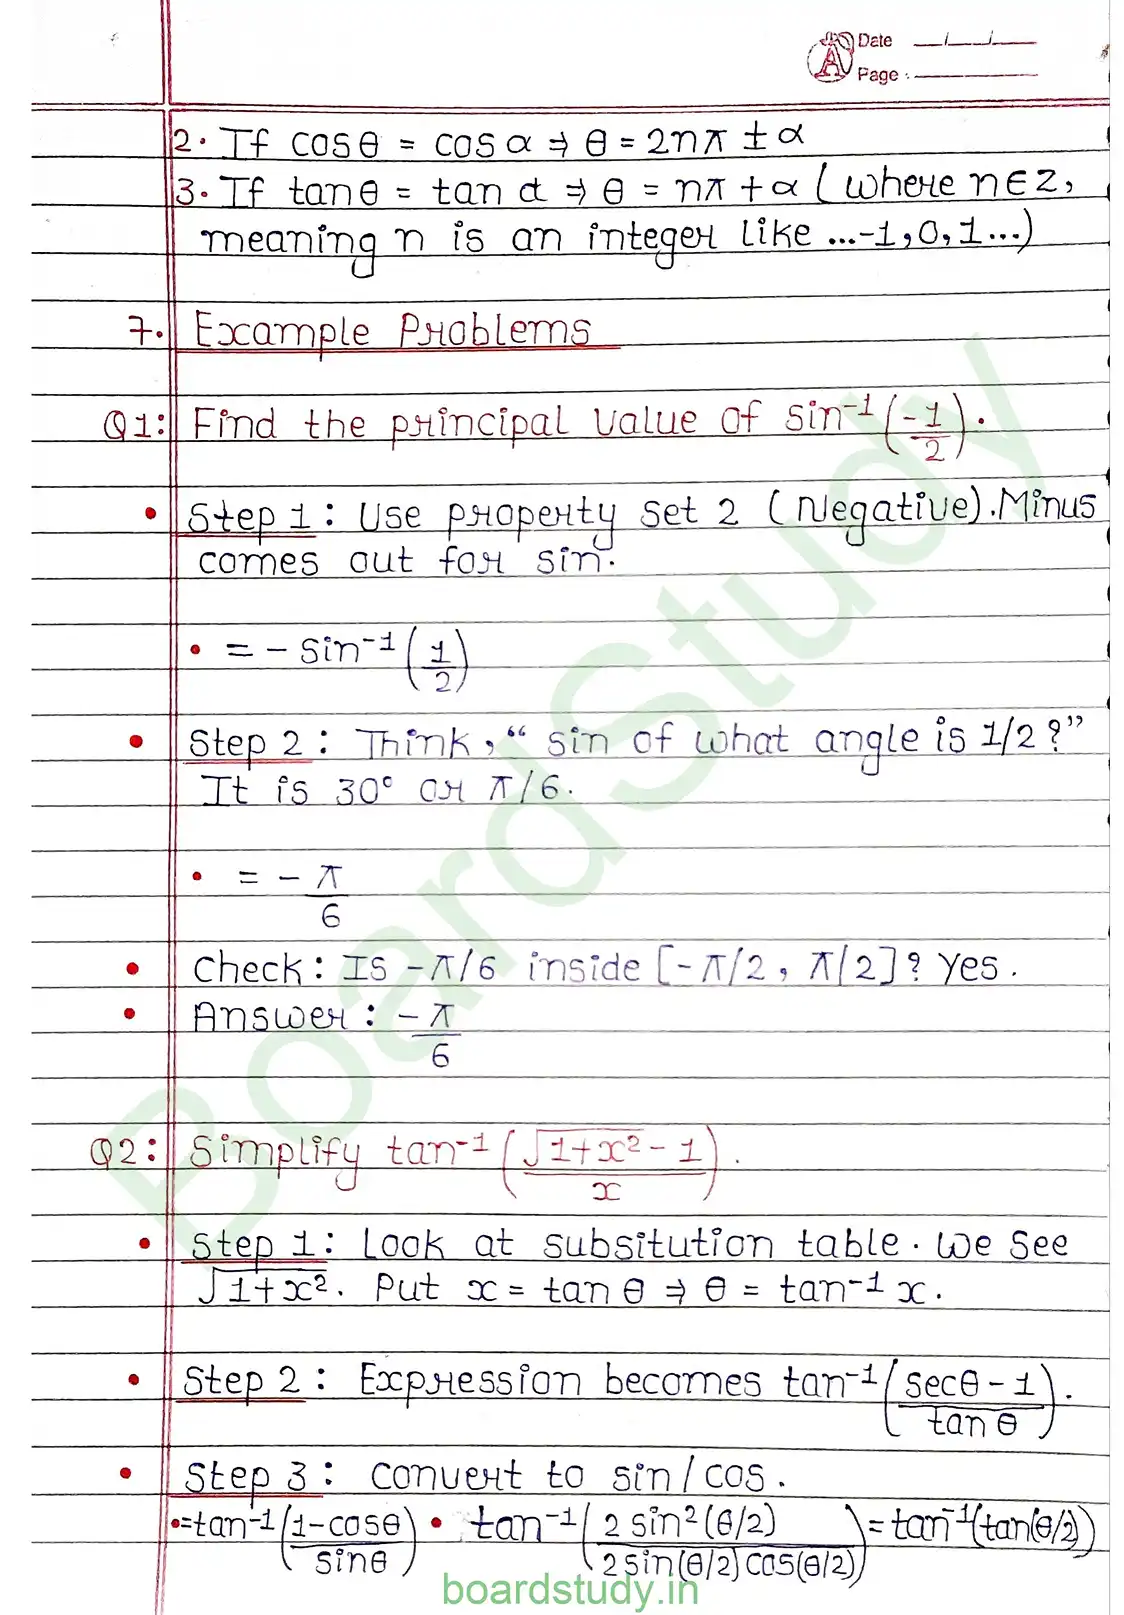 Date __/__/__
Page :
2. If cosθ = cos α ⇒ θ = 2nπ ± α
3. If tanθ = tan α ⇒ θ = nπ + α (where n∈Z,
meaning n is an integer like ...-1,0,1...)
7. Example Problems
Q1: Find the principal value of sin⁻¹(-1/2).
• Step 1: Use property set 2 (Negative). Minus
comes out for sin.
• = - sin⁻¹(1/2)
• Step 2: Think, “sin of what angle is 1/2?”
It is 30° or π/6.
• = - π/6
• Check: Is -π/6 inside [-π/2, π/2]? Yes.
• Answer: -π/6
Q2: Simplify tan⁻¹((√1+x² - 1)/x).
• Step 1: Look at subsitution table. We see
√1+x². Put x = tan θ ⇒ θ = tan⁻¹ x.
• Step 2: Expression becomes tan⁻¹((secθ - 1)/tan θ).
• Step 3: Convert to sin/cos.
• = tan⁻¹((1-cosθ)/sinθ) • tan⁻¹(2 sin²(θ/2)/2 sin(θ/2) cos(θ/2)) = tan⁻¹(tan(θ/2))
BoardStudy
boardstudy.in